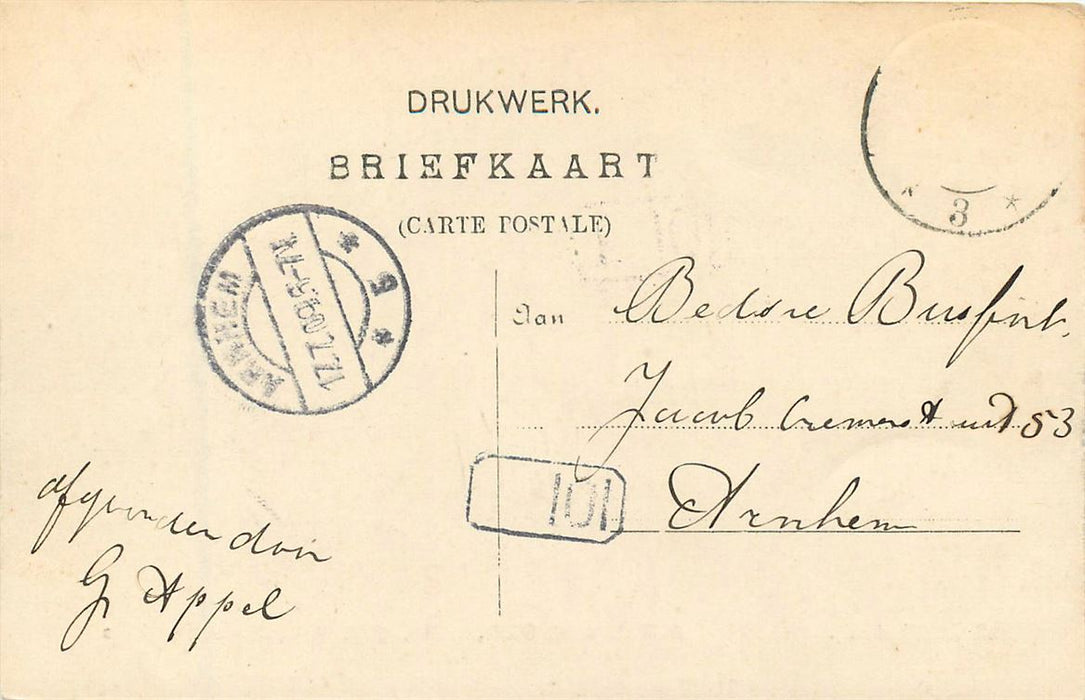 DRUKWERK.
BRIEFKAART
(CARTE POSTALE)
ARNHEM
17.7.08 5-7N
* 5 *
* 3 *
Aan
Jacob Cremerst 53
Arnhem
101
afgezonden door
G Appel